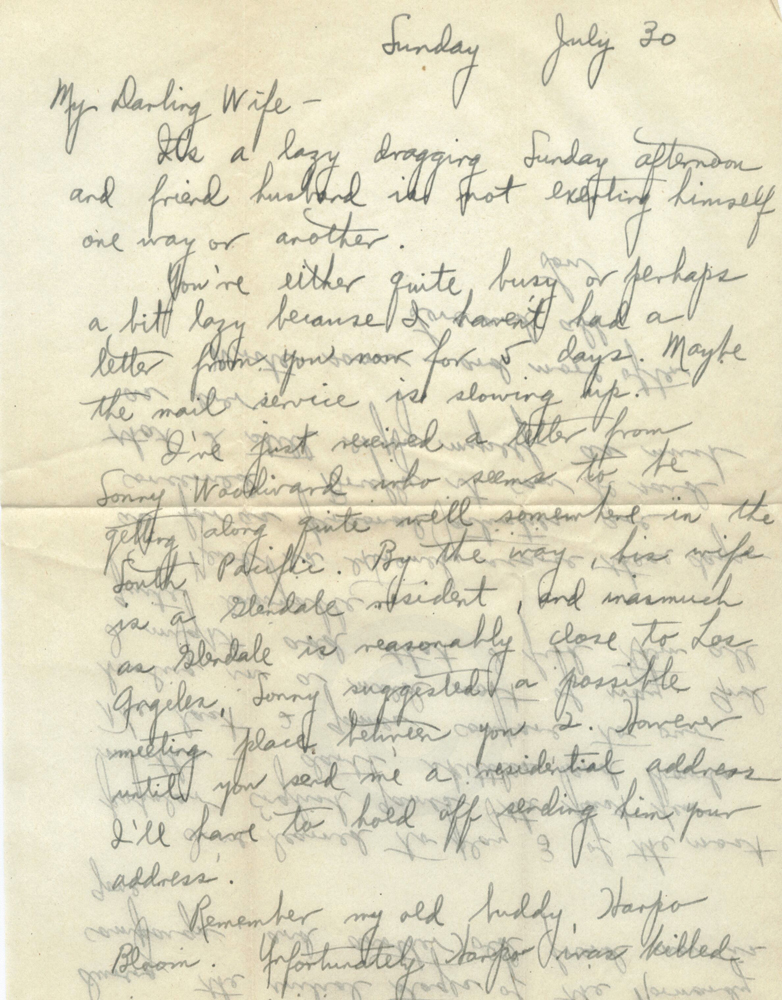 Sunday July 30
My Darling Wife -
It's a lazy dragging Sunday afternoon
and friend husband is not exerting himself
one way or another.
You're either quite busy or perhaps
a bit lazy because I haven't had a
letter from you now for 5 days. Maybe
the mail service is slowing up.
I've just received a letter from
Sonny Woodward who seems to be
getting along quite well somewhere in the
South Pacific. By the way, his wife
is a Glendale resident, and inasmuch
as Glendale is reasonably close to Los
Angeles, Sonny suggested a possible
meeting place between you 2. However
until you send me a residential address
I'll have to hold off sending him your
address.
Remember my old buddy, Harpo
Bloom. Unfortunately Harpo was killed